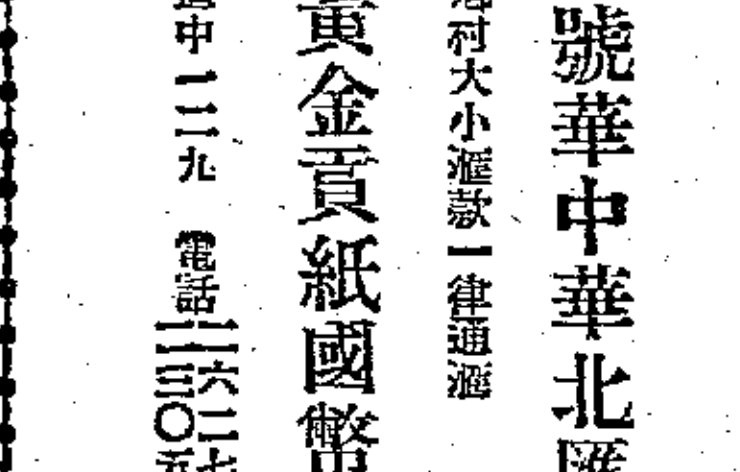 號華中華北匯
村大小滙款一律通滙
黃金貢紙國幣
中一二九 電話
二六二七
二三〇五